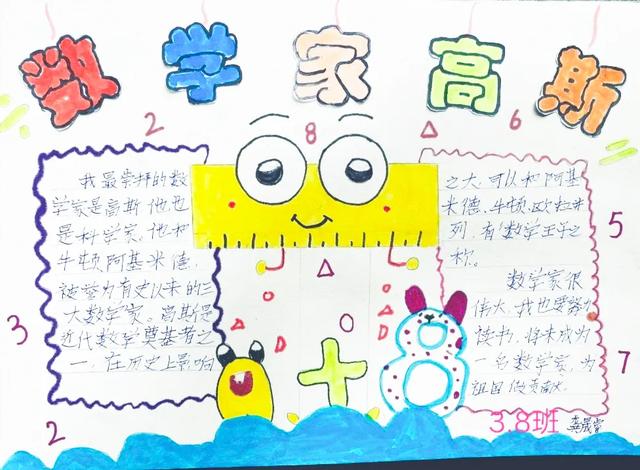 数学家高斯
2
8
6
5
3
7
2
我最崇拜的数
学家是高斯,他也
是科学家,他和
牛顿、阿基米德,
被誉为有史以来的三
大数学家。高斯是
近代数学奠基者之
一,在历史上影响
之大,可以和阿基
米德、牛顿、欧拉并
列,有"数学王子"之
称。
数学家很
伟大,我也要努力
读书,将来成为
一名数学家,为
祖国做贡献。
3.8班